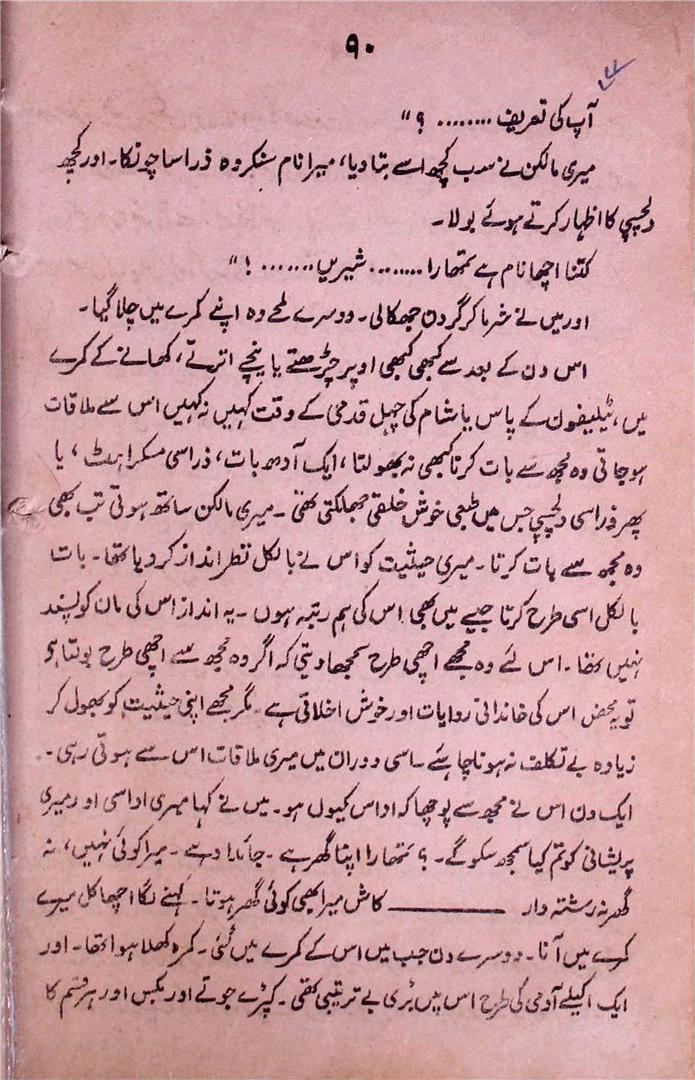 ۹۰
آپ کی تعریف ........ ؟ "
میری مالکن نے سب کچھ اسے بتا دیا، میرا نام سنکر وہ ذرا سا چونکا۔ اور کچھ
دلچسپی کا اظہار کرتے ہوئے بولا۔
کتنا اچھا نام ہے تمھارا ........ شیریں ....... ! "
اور میں نے شرما کر گردن جھکا لی۔ دوسرے لمحے وہ اپنے کمرے میں چلا گیا۔
اس دن کے بعد سے کبھی کبھی اوپر چڑھتے یا نیچے اترتے، کھانے کے کمرے
میں، ٹیلیفون کے پاس یا شام کی چہل قدمی کے وقت کہیں نہ کہیں اس سے ملاقات
ہو جاتی وہ مجھ سے بات کرنا کبھی نہ بھولتا، ایک آدھ بات، ذرا سی مسکراہٹ، یا
پھر ذرا سی دلچسپی جس میں طبعی خوش خلقی جھلکتی تھی۔ میری مالکن ساتھ ہوتی تب بھی
وہ مجھ سے بات کرتا۔ میری حیثیت کو اس نے بالکل نظر انداز کر دیا تھا۔ بات
بالکل اسی طرح کرتا جیسے میں بھی اس کی ہم رتبہ ہوں۔ یہ انداز اس کی ماں کو پسند
نہیں تھا۔ اس لئے وہ مجھے اچھی طرح سمجھا دیتی کہ اگر وہ مجھ سے اچھی طرح بولتا ہو
تو یہ محض اس کی خاندانی روایات اور خوش اخلاقی ہے۔ مگر مجھے اپنی حیثیت کو بھول کر
زیادہ بے تکلف نہ ہونا چاہئے۔ اسی دوران میں میری ملاقات اس سے ہوتی رہی۔
ایک دن اس نے مجھ سے پوچھا کہ اداس کیوں ہو۔ میں نے کہا میری اداسی اور میری
پریشانی کو تم کیا سمجھ سکو گے۔ ؟ تمھارا اپنا گھر ہے۔ جائداد ہے۔ میرا کوئی نہیں، نہ
گھر نہ رشتہ دار ــــــــــــ کاش میرا بھی کوئی گھر ہوتا۔ کہنے لگا اچھا کل میرے
کمرے میں آنا۔ دوسرے دن جب میں اس کے کمرے میں گئی۔ کمرہ کھلا ہوا تھا۔ اور
ایک اکیلے آدمی کی طرح اس میں بڑی بے ترتیبی تھی۔ کپڑے جوتے اور بکس اور ہر قسم کا